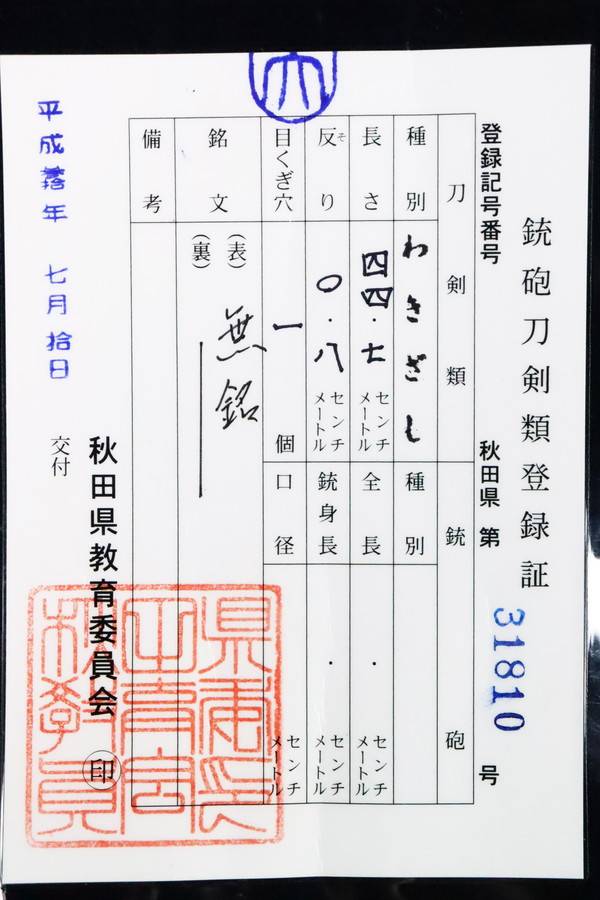 銃砲刀剣類登録証
登録記号番号 秋田県 第 31810 号
刀剣類 銃砲
種別 わきざし 種別
長さ 四四.七 センチメートル 全長 . センチメートル
反り そ 〇.八 センチメートル 銃身長 . センチメートル
目くぎ穴 一 個 口径 センチメートル
銘文 (表) 無銘
(裏)
備考
秋田県教育委員会 印
交付
七月拾日